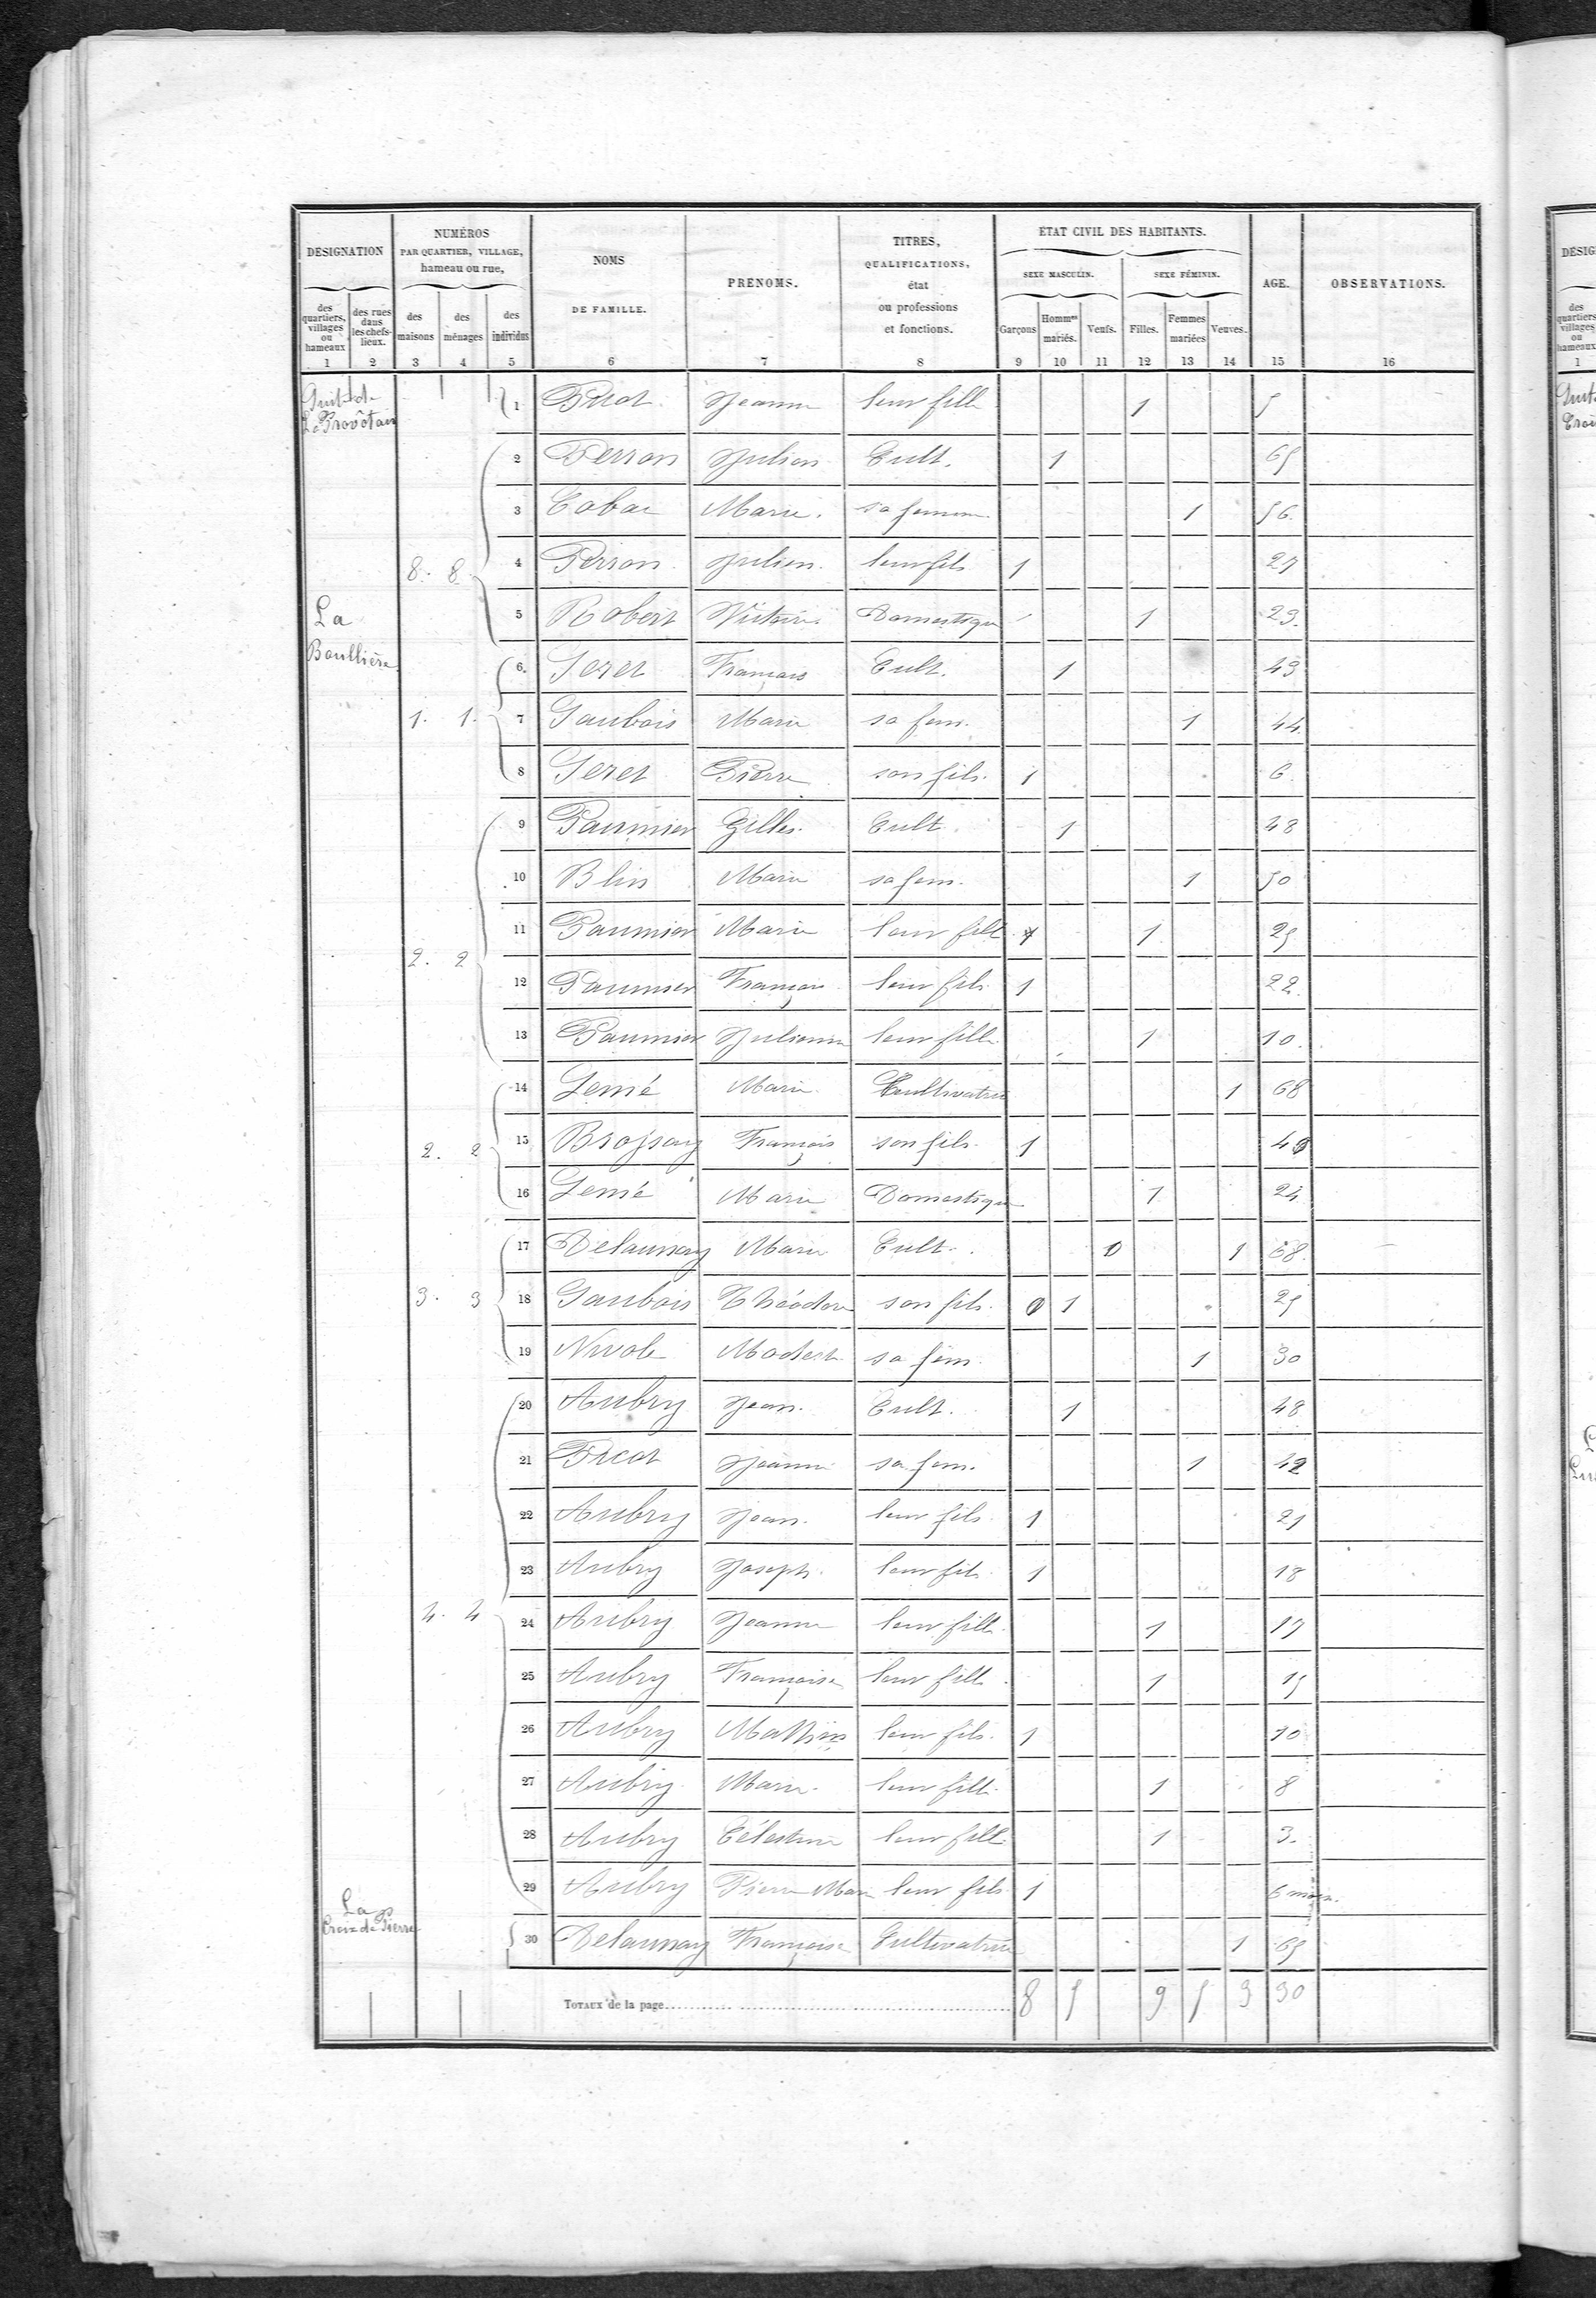 DESIGNATION
NUMÉROS
PAR QUARTIER, VILLAGE,
hameau ou rue,
NOMS
DE FAMILLE.
PRÉNOMS.
TITRES,
QUALIFICATIONS,
état
ou professions
et fonctions.
ÉTAT CIVIL DES HABITANTS.
SEXE MASCULIN.
SEXE FÉMININ.
AGE.
OBSERVATIONS.
des quartiers, villages ou hameaux
des rues dans les chefs-lieux.
des maisons
des ménages
des individus
Garçons
Hommes mariés.
Veufs.
Filles.
Femmes mariées
Veuves.
1 2 3 4 5 6 7 8 9 10 11 12 13 14 15 16
Suite de
La Provôtai
1 Picot Jeanne leur fille 1 5
2 Perron Julien Cult. 1 65
3 Marie. sa femme 1 56.
8. 8 4 Perron Julien leur fils 1 27
La
Boullière
5 Robert Victoire Domestique 1 23.
6. Seret François Cult. 1 43
1. 1. 7 Gaubois Marie sa fem. 1 44
8 Seret Pierre son fils. 1 6.
9 Paumier Gilles. Cult. 1 48
10 Blin Marie sa fem. 1 50
11 Paumier Marie leur fille 1 25
2. 2 12 Paumier François leur fils 1 22.
13 Paumier Julienne leur fille 1 10.
14 Lemé Marie Cultivatrice 1 68
2. 2 15 Brossay François son fils. 1 40
16 Lemé Marie Domestique 1 24
17 Delaunay Marie Cult. 1 68.
3. 3 18 Gaubois Théodore son fils. 1 25
19 Nivole Modeste sa fem. 1 30
20 Aubry Jean. Cult. 1 48
21 Picot Jeanne sa fem. 1 42
22 Aubry Jean. leur fils. 1 21
23 Aubry Joseph. leur fils 1 18
4. 4 24 Aubry Jeanne leur fille 1 17
25 Aubry Françoise leur fille 1 15
26 Aubry Mathias leur fils. 1 10
27 Aubry Marie. leur fille 1 8
28 Aubry Célestine leur fille 1 3.
29 Aubry Pierre Marie leur fils 1 6 mois.
La
Croix de Pierre
30 Delaunay Françoise Cultivatrice 1 65
TOTAUX de la page 8 5 9 5 3 30